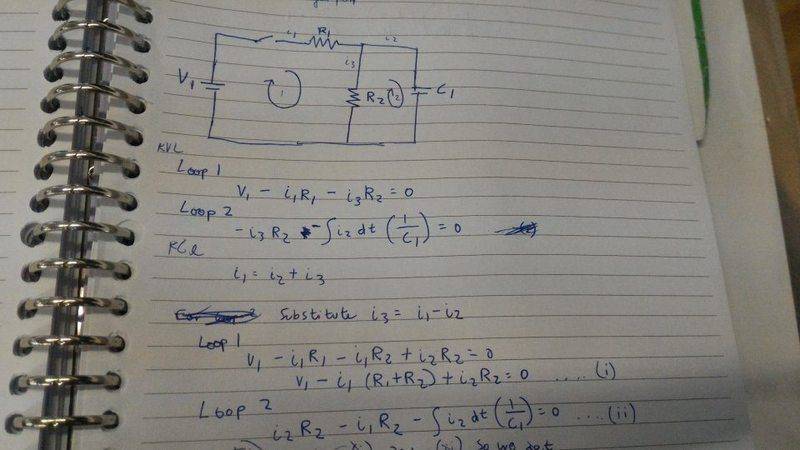 i₁ R₁ i₂
i₃
V₁ 1 R₂ 2 C₁
KVL
Loop 1
V₁ - i₁R₁ - i₃R₂ = 0
Loop 2
-i₃R₂ - ∫i₂ dt (1/C₁) = 0
KCL
i₁ = i₂ + i₃
Substitute i₃ = i₁ - i₂
Loop 1
V₁ - i₁R₁ - i₁R₂ + i₂R₂ = 0
V₁ - i₁ (R₁+R₂) + i₂R₂ = 0 .... (i)
Loop 2
i₂R₂ - i₁R₂ - ∫i₂ dt (1/C₁) = 0 .... (ii)
so we get